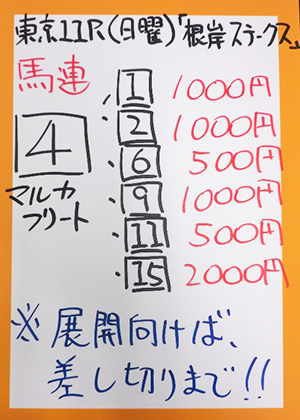 東京11R(日曜)「根岸ステークス」
馬連
4
マルカ
フリート
・1 1000円
・2 1000円
・6 500円
・9 1000円
・11 500円
・15 2000円
※展開向けば、
差し切りまで!!